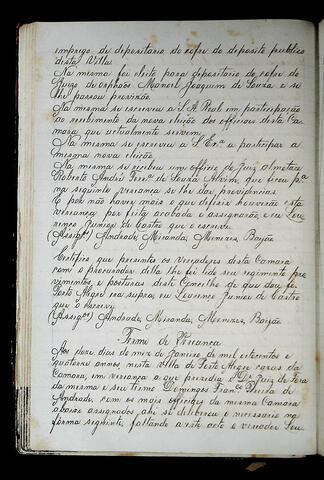 emprego de depositario do cofre do deposito publico
desta Villa
Na mesma foi eleito para depositario do cofre do
Juizo de orphãos Manoel Joaquim de Souza e se
lhe passou provisão.
Na mesma se escreveu a S. A. Real em participação
ao recebimento da nova eleição dos officiaes desta Ca-
mara que actualmente servem
Na mesma se escreveu a S. Ex.ª a participar a
mesma nova eleição
Na mesma se recebeu um officio do Juiz Almotace
Roberto André de Souza que
na seguinte vereança se lhe dar providencias
E por não haver mais o que deferir houverão esta
vereança por feita acabada e assignarão, e eu Lou-
renço Junior de Castro que o escrevi
(Assig.os) Andrade, Miranda, Menezes, Baião
Certifico que presentes os Vereadores desta Camara
com o procurador della lhe foi lido seu regimento pro-
vimentos e posturas deste Concelho de que dou fé.
Porto Alegre era supra eu Lourenço Junior de Castro
que o escrevi
(Assig.os) Andrade, Miranda, Menezes, Baião
Termo de Vereança
Aos doze dias do mez de Janeiro de mil oitocentos e
quatorze annos, nesta villa de Porto Alegre casas da
Camara, em vereança a que prezedio o Dr. Juiz de Fóra
da mesma e seu termo Domingos Fran.co de
Andrade, com os mais officiaes da mesma Camara
abaixo assignados, ahi se deliberou o necessario na
forma seguinte, faltando a este acto o vereador Seu